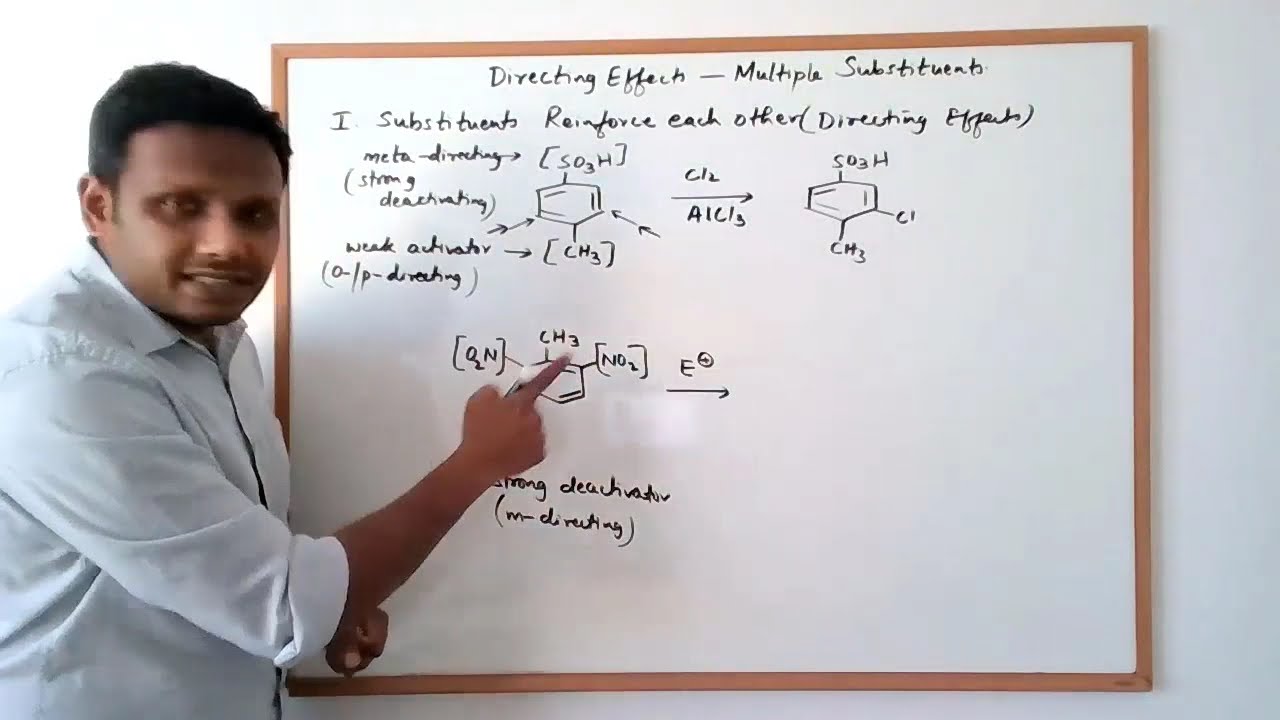 Directing Effects — Multiple Substituents.
I. Substituents Reinforce each other (Directing Effects)
meta-directing → [SO3H]
(strong deactivating)
weak activator → [CH3]
(o-/p-directing)
Cl2
AlCl3
SO3H
Cl
CH3
CH3
[O2N]
[NO2]
E⊕
strong deactivator
(m-directing)